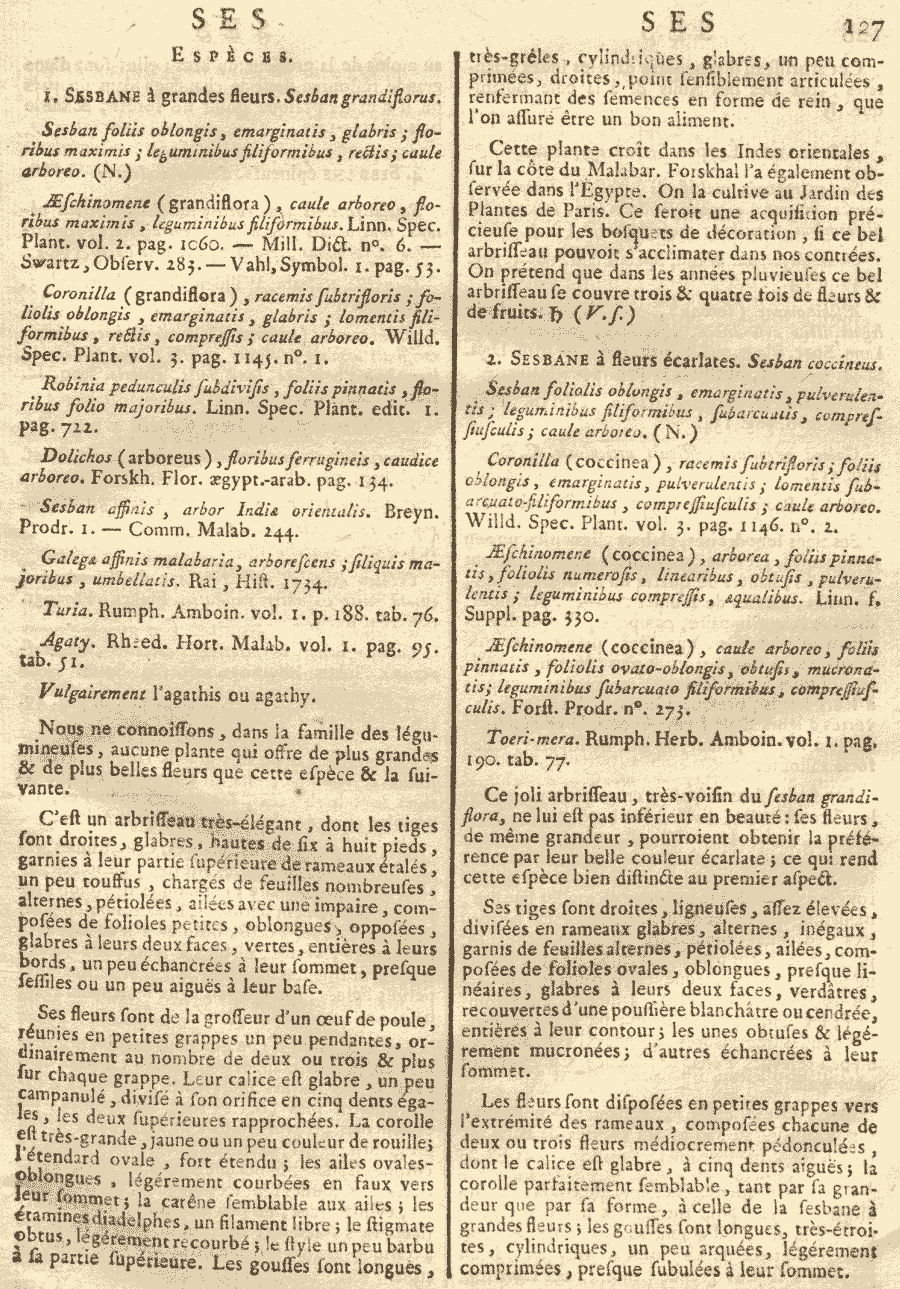 SES
ESPÈCES.
1. SESBANE à grandes fleurs. Sesban grandiflorus.
Sesban foliis oblongis, emarginatis, glabris ; flo-
ribus maximis ; leguminibus filiformibus, rectis ; caule
arboreo. (N.)
Æſchinomene (grandiflora), caule arboreo, flo-
ribus maximis, leguminibus filiformibus. Linn. Spec.
Plant. vol. 2. pag. 1060. — Mill. Dict. nº. 6. —
Swartz, Obſerv. 283. — Vahl, Symbol. 1. pag. 53.
Coronilla (grandiflora), racemis ſubtrifloris ; fo-
liolis oblongis, emarginatis, glabris ; lomentis fili-
formibus, rectis, compreſſis ; caule arboreo. Willd.
Spec. Plant. vol. 3. pag. 1145. nº. 1.
Robinia pedunculis ſubdiviſis, foliis pinnatis, flo-
ribus folio majoribus. Linn. Spec. Plant. edit. 1.
pag. 722.
Dolichos (arboreus), floribus ferrugineis, caudice
arboreo. Forskh. Flor. ægypt.-arab. pag. 134.
Sesban affinis, arbor Indiæ orientalis. Breyn.
Prodr. 1. — Comm. Malab. 244.
Galegæ affinis malabaria, arboreſcens ; ſiliquis ma-
joribus, umbellatis. Rai, Hiſt. 1734.
Turia. Rumph. Amboin. vol. 1. p. 188. tab. 76.
Agaty. Rheed. Hort. Malab. vol. 1. pag. 95.
tab. 51.
Vulgairement l'agathis ou agathy.
Nous ne connoiſſons, dans la famille des légu-
mineuſes, aucune plante qui offre de plus grandes
& de plus belles fleurs que cette eſpèce & la ſui-
vante.
C'eſt un arbriſſeau très-élégant, dont les tiges
ſont droites, glabres, hautes de ſix à huit pieds,
garnies à leur partie ſupérieure de rameaux étalés,
un peu touffus, chargés de feuilles nombreuſes,
alternes, pétiolées, ailées avec une impaire, com-
poſées de folioles petites, oblongues, oppoſées,
glabres à leurs deux faces, vertes, entières à leurs
bords, un peu échancrées à leur ſommet, preſque
ſeſſiles ou un peu aiguës à leur baſe.
Ses fleurs ſont de la groſſeur d'un œuf de poule,
réunies en petites grappes un peu pendantes, or-
dinairement au nombre de deux ou trois & plus
ſur chaque grappe. Leur calice eſt glabre, un peu
campanulé, diviſé à ſon orifice en cinq dents éga-
les, les deux ſupérieures rapprochées. La corolle
eſt très-grande, jaune ou un peu couleur de rouille;
l'étendard ovale, fort étendu ; les ailes ovales-
oblongues, légérement courbées en faux vers
leur ſommet ; la carène ſemblable aux ailes ; les
étamines diadelphes, un filament libre ; le ſtigmate
obtus, légérement recourbé ; le ſtyle un peu barbu
à ſa partie ſupérieure. Les gouſſes ſont longues,
SES 127
très-grêles, cylindriques, glabres, un peu com-
primées, droites, point ſenſiblement articulées,
renfermant des ſemences en forme de rein, que
l'on aſſure être un bon aliment.
Cette plante croît dans les Indes orientales,
ſur la côte du Malabar. Forskhal l'a également ob-
ſervée dans l'Egypte. On la cultive au Jardin des
Plantes de Paris. Ce ſeroit une acquiſition pré-
cieuſe pour les boſquets de décoration, ſi ce bel
arbriſſeau pouvoit s'acclimater dans nos contrées.
On prétend que dans les années pluvieuſes ce bel
arbriſſeau ſe couvre trois & quatre fois de fleurs &
de fruits. ♄ (V. ſ.)
2. SESBANE à fleurs écarlates. Sesban coccineus.
Sesban foliolis oblongis, emarginatis, pulverulen-
tis ; leguminibus filiformibus, ſubarcuatis, compreſ-
ſiuſculis ; caule arboreo. (N.)
Coronilla (coccinea), racemis ſubtrifloris ; foliis
oblongis, emarginatis, pulverulentis ; lomentis ſub-
arcuato-filiformibus, compreſſiuſculis ; caule arboreo.
Willd. Spec. Plant. vol. 3. pag. 1146. nº. 2.
Æſchinomene (coccinea), arborea, foliis pinna-
tis, foliolis numeroſis, linearibus, obtuſis, pulveru-
lentis ; leguminibus compreſſis, æqualibus. Linn. f.
Suppl. pag. 330.
Æſchinomene (coccinea), caule arboreo, foliis
pinnatis, foliolis ovato-oblongis, obtuſis, mucrona-
tis ; leguminibus ſubarcuato filiformibus, compreſſiuſ-
culis. Forſt. Prodr. nº. 273.
Toeri-mera. Rumph. Herb. Amboin. vol. 1. pag.
190. tab. 77.
Ce joli arbriſſeau, très-voiſin du ſesban grandi-
flora, ne lui eſt pas inférieur en beauté : ſes fleurs,
de même grandeur, pourroient obtenir la préfé-
rence par leur belle couleur écarlate ; ce qui rend
cette eſpèce bien diſtincte au premier aſpect.
Ses tiges ſont droites, ligneuſes, aſſez élevées,
diviſées en rameaux glabres, alternes, inégaux,
garnis de feuilles alternes, pétiolées, ailées, com-
poſées de folioles ovales, oblongues, preſque li-
néaires, glabres à leurs deux faces, verdâtres,
recouvertes d'une pouſſière blanchâtre ou cendrée,
entières à leur contour ; les unes obtuſes & légé-
rement mucronées ; d'autres échancrées à leur
ſommet.
Les fleurs ſont diſpoſées en petites grappes vers
l'extrémité des rameaux, compoſées chacune de
deux ou trois fleurs médiocrement pédonculées,
dont le calice eſt glabre, à cinq dents aiguës ; la
corolle parfaitement ſemblable, tant par ſa gran-
deur que par ſa forme, à celle de la ſesbane à
grandes fleurs ; les gouſſes ſont longues, très-étroi-
tes, cylindriques, un peu arquées, légérement
comprimées, preſque ſubulées à leur ſommet.